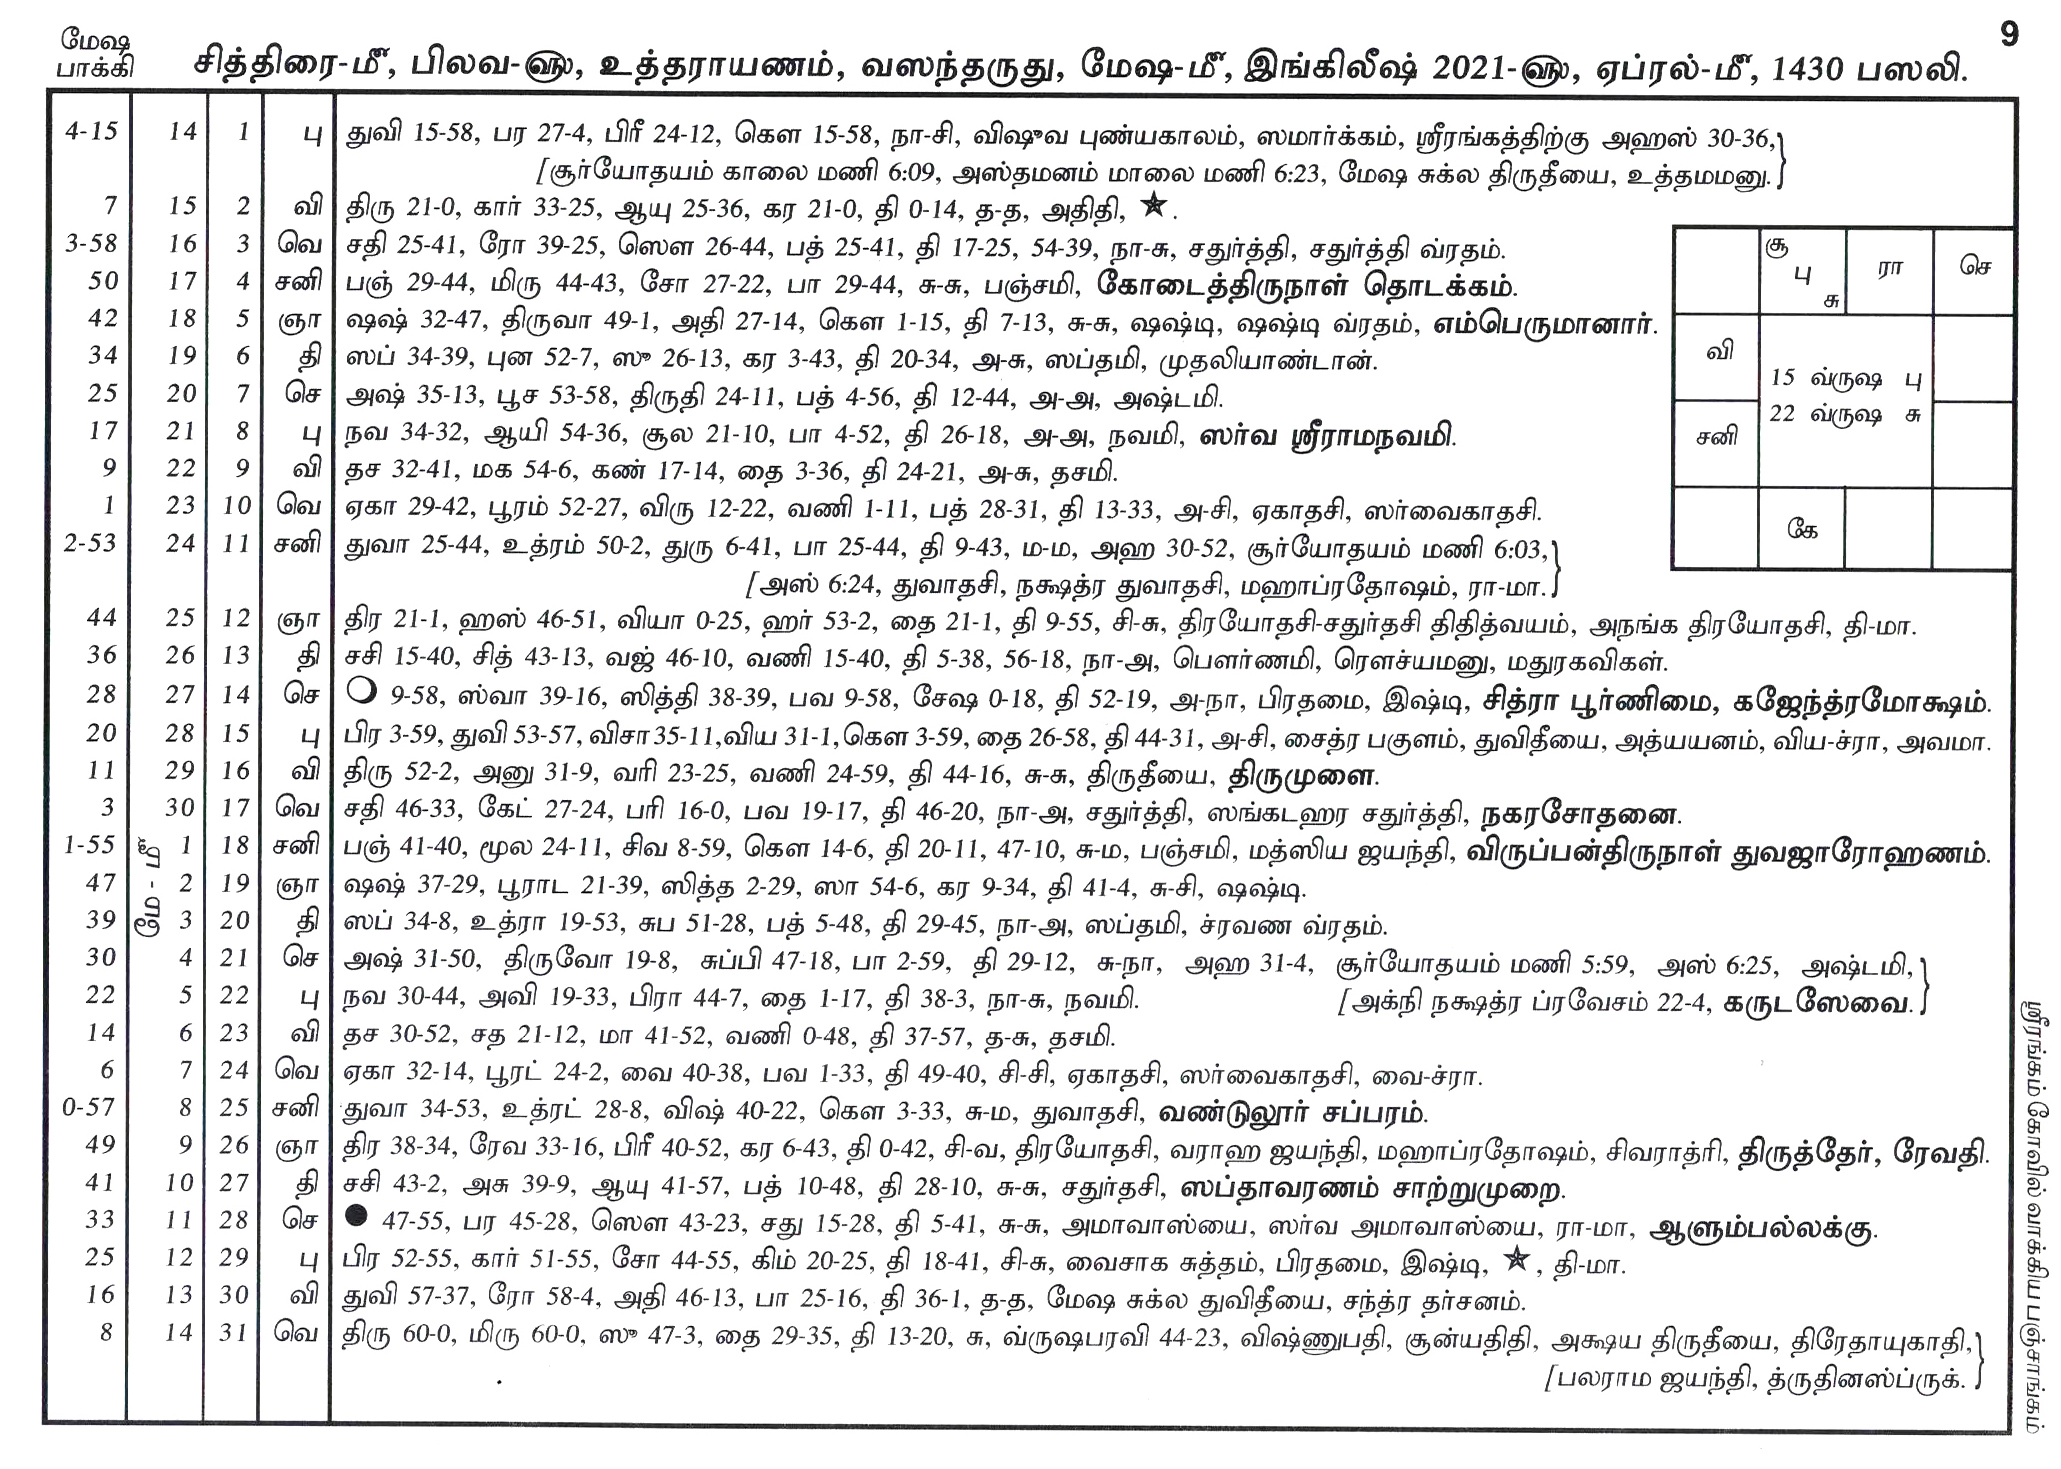 9
மேஷ
பாக்கி
சித்திரை-மீ, பிலவ-௵, உத்தராயணம், வஸந்தருது, மேஷ-மீ, இங்கிலீஷ் 2021-௵, ஏப்ரல்-மீ, 1430 பஸலி.
4-15 14 1 பு துவி 15-58, பர 27-4, பிரீ 24-12, கௌ 15-58, நா-சி, விஷுவ புண்யகாலம், ஸமார்க்கம், ஸ்ரீரங்கத்திற்கு அஹஸ் 30-36,}
[சூர்யோதயம் காலை மணி 6:09, அஸ்தமனம் மாலை மணி 6:23, மேஷ சுக்ல திருதீயை, உத்தமமனு.}
7 15 2 வி திரு 21-0, கார் 33-25, ஆயு 25-36, கர 21-0, தி 0-14, த-த, அதிதி, ★.
3-58 16 3 வெ சதி 25-41, ரோ 39-25, ஸௌ 26-44, பத் 25-41, தி 17-25, 54-39, நா-சு, சதுர்த்தி, சதுர்த்தி வ்ரதம்.
50 17 4 சனி பஞ் 29-44, மிரு 44-43, சோ 27-22, பா 29-44, சு-சு, பஞ்சமி, கோடைத்திருநாள் தொடக்கம்.
42 18 5 ஞா ஷஷ் 32-47, திருவா 49-1, அதி 27-14, கௌ 1-15, தி 7-13, சு-சு, ஷஷ்டி, ஷஷ்டி வ்ரதம், எம்பெருமானார்.
34 19 6 தி ஸப் 34-39, புன 52-7, ஸு 26-13, கர 3-43, தி 20-34, அ-சு, ஸப்தமி, முதலியாண்டான்.
25 20 7 செ அஷ் 35-13, பூச 53-58, திருதி 24-11, பத் 4-56, தி 12-44, அ-அ, அஷ்டமி.
17 21 8 பு நவ 34-32, ஆயி 54-36, சூல 21-10, பா 4-52, தி 26-18, அ-அ, நவமி, ஸர்வ ஸ்ரீராமநவமி.
9 22 9 வி தச 32-41, மக 54-6, கண் 17-14, தை 3-36, தி 24-21, அ-சு, தசமி.
1 23 10 வெ ஏகா 29-42, பூரம் 52-27, விரு 12-22, வணி 1-11, பத் 28-31, தி 13-33, அ-சி, ஏகாதசி, ஸர்வைகாதசி.
2-53 24 11 சனி துவா 25-44, உத்ரம் 50-2, துரு 6-41, பா 25-44, தி 9-43, ம-ம, அஹ 30-52, சூர்யோதயம் மணி 6:03,}
[அஸ் 6:24, துவாதசி, நக்ஷத்ர துவாதசி, மஹாப்ரதோஷம், ரா-மா.}
சூ
பு
சு
ரா
செ
வி
15 வ்ருஷ பு
22 வ்ருஷ சு
சனி
கே
44 25 12 ஞா திர 21-1, ஹஸ் 46-51, வியா 0-25, ஹர் 53-2, தை 21-1, தி 9-55, சி-சு, திரயோதசி-சதுர்தசி திதித்வயம், அநங்க திரயோதசி, தி-மா.
36 26 13 தி சசி 15-40, சித் 43-13, வஜ் 46-10, வணி 15-40, தி 5-38, 56-18, நா-அ, பௌர்ணமி, ரௌச்யமனு, மதுரகவிகள்.
28 27 14 செ ○ 9-58, ஸ்வா 39-16, ஸித்தி 38-39, பவ 9-58, சேஷ 0-18, தி 52-19, அ-நா, பிரதமை, இஷ்டி, சித்ரா பூர்ணிமை, கஜேந்த்ரமோக்ஷம்.
20 28 15 பு பிர 3-59, துவி 53-57, விசா 35-11, விய 31-1, கௌ 3-59, தை 26-58, தி 44-31, அ-சி, சைத்ர பகுளம், துவிதீயை, அத்யயனம், விய-ச்ரா, அவமா.
11 29 16 வி திரு 52-2, அனு 31-9, வரி 23-25, வணி 24-59, தி 44-16, சு-சு, திருதீயை, திருமுளை.
3 30 17 வெ சதி 46-33, கேட் 27-24, பரி 16-0, பவ 19-17, தி 46-20, நா-அ, சதுர்த்தி, ஸங்கடஹர சதுர்த்தி, நகரசோதனை.
மே-மீ
1-55 1 18 சனி பஞ் 41-40, மூல 24-11, சிவ 8-59, கௌ 14-6, தி 20-11, 47-10, சு-ம, பஞ்சமி, மத்ஸிய ஜயந்தி, விருப்பன்திருநாள் துவஜாரோஹணம்.
47 2 19 ஞா ஷஷ் 37-29, பூராட 21-39, ஸித்த 2-29, ஸா 54-6, கர 9-34, தி 41-4, சு-சி, ஷஷ்டி.
39 3 20 தி ஸப் 34-8, உத்ரா 19-53, சுப 51-28, பத் 5-48, தி 29-45, நா-அ, ஸப்தமி, ச்ரவண வ்ரதம்.
30 4 21 செ அஷ் 31-50, திருவோ 19-8, சுப்பி 47-18, பா 2-59, தி 29-12, சு-நா, அஹ 31-4, சூர்யோதயம் மணி 5:59, அஸ் 6:25, அஷ்டமி,}
22 5 22 பு நவ 30-44, அவி 19-33, பிரா 44-7, தை 1-17, தி 38-3, நா-சு, நவமி. [அக்நி நக்ஷத்ர ப்ரவேசம் 22-4, கருடஸேவை.}
14 6 23 வி தச 30-52, சத 21-12, மா 41-52, வணி 0-48, தி 37-57, த-சு, தசமி.
6 7 24 வெ ஏகா 32-14, பூரட் 24-2, வை 40-38, பவ 1-33, தி 49-40, சி-சி, ஏகாதசி, ஸர்வைகாதசி, வை-ச்ரா.
0-57 8 25 சனி துவா 34-53, உத்ரட் 28-8, விஷ் 40-22, கௌ 3-33, சு-ம, துவாதசி, வண்டுலூர் சப்பரம்.
49 9 26 ஞா திர 38-34, ரேவ 33-16, பிரீ 40-52, கர 6-43, தி 0-42, சி-வ, திரயோதசி, வராஹ ஜயந்தி, மஹாப்ரதோஷம், சிவராத்ரி, திருத்தேர், ரேவதி.
41 10 27 தி சசி 43-2, அசு 39-9, ஆயு 41-57, பத் 10-48, தி 28-10, சு-சு, சதுர்தசி, ஸப்தாவரணம் சாற்றுமுறை.
33 11 28 செ ● 47-55, பர 45-28, ஸௌ 43-23, சது 15-28, தி 5-41, சு-சு, அமாவாஸ்யை, ஸர்வ அமாவாஸ்யை, ரா-மா, ஆளும்பல்லக்கு.
25 12 29 பு பிர 52-55, கார் 51-55, சோ 44-55, கிம் 20-25, தி 18-41, சி-சு, வைசாக சுத்தம், பிரதமை, இஷ்டி, ★, தி-மா.
16 13 30 வி துவி 57-37, ரோ 58-4, அதி 46-13, பா 25-16, தி 36-1, த-த, மேஷ சுக்ல துவிதீயை, சந்த்ர தர்சனம்.
8 14 31 வெ திரு 60-0, மிரு 60-0, ஸு 47-3, தை 29-35, தி 13-20, சு, வ்ருஷபரவி 44-23, விஷ்ணுபதி, சூன்யதிதி, அக்ஷய திருதீயை, திரேதாயுகாதி,}
[பலராம ஜயந்தி, த்ருதினஸ்ப்ருக்.}
ஸ்ரீரங்கம் கோவில் வாக்கிய பஞ்சாங்கம்